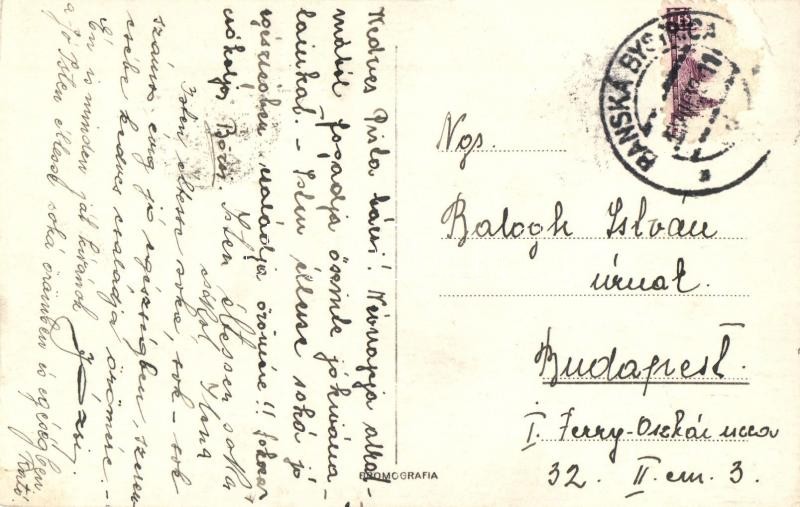 Kedves Pista bácsi! Névnapja alkal-
mából fogadja őszinte jókívána-
tainkat. - Isten éltesse soká jó
egészségben családja örömére!! Sokszor
csókolja Bözsi. Isten éltessen soká!
csókol Ilona
Isten éltesse soká, sok-sok
számos évig jó egészségben, szeren-
csébe kedves családja örömére. -
Én is minden jót kívánok Józsi.
a jó Isten éltesse soká örömben és egészségben
BANSKÁ BYSTRICA
Ngs.
Balogh István
úrnak.
Budapest.
I. Ferry-Oszkár ucca
32. II. em. 3.
PROMOGRAFIA